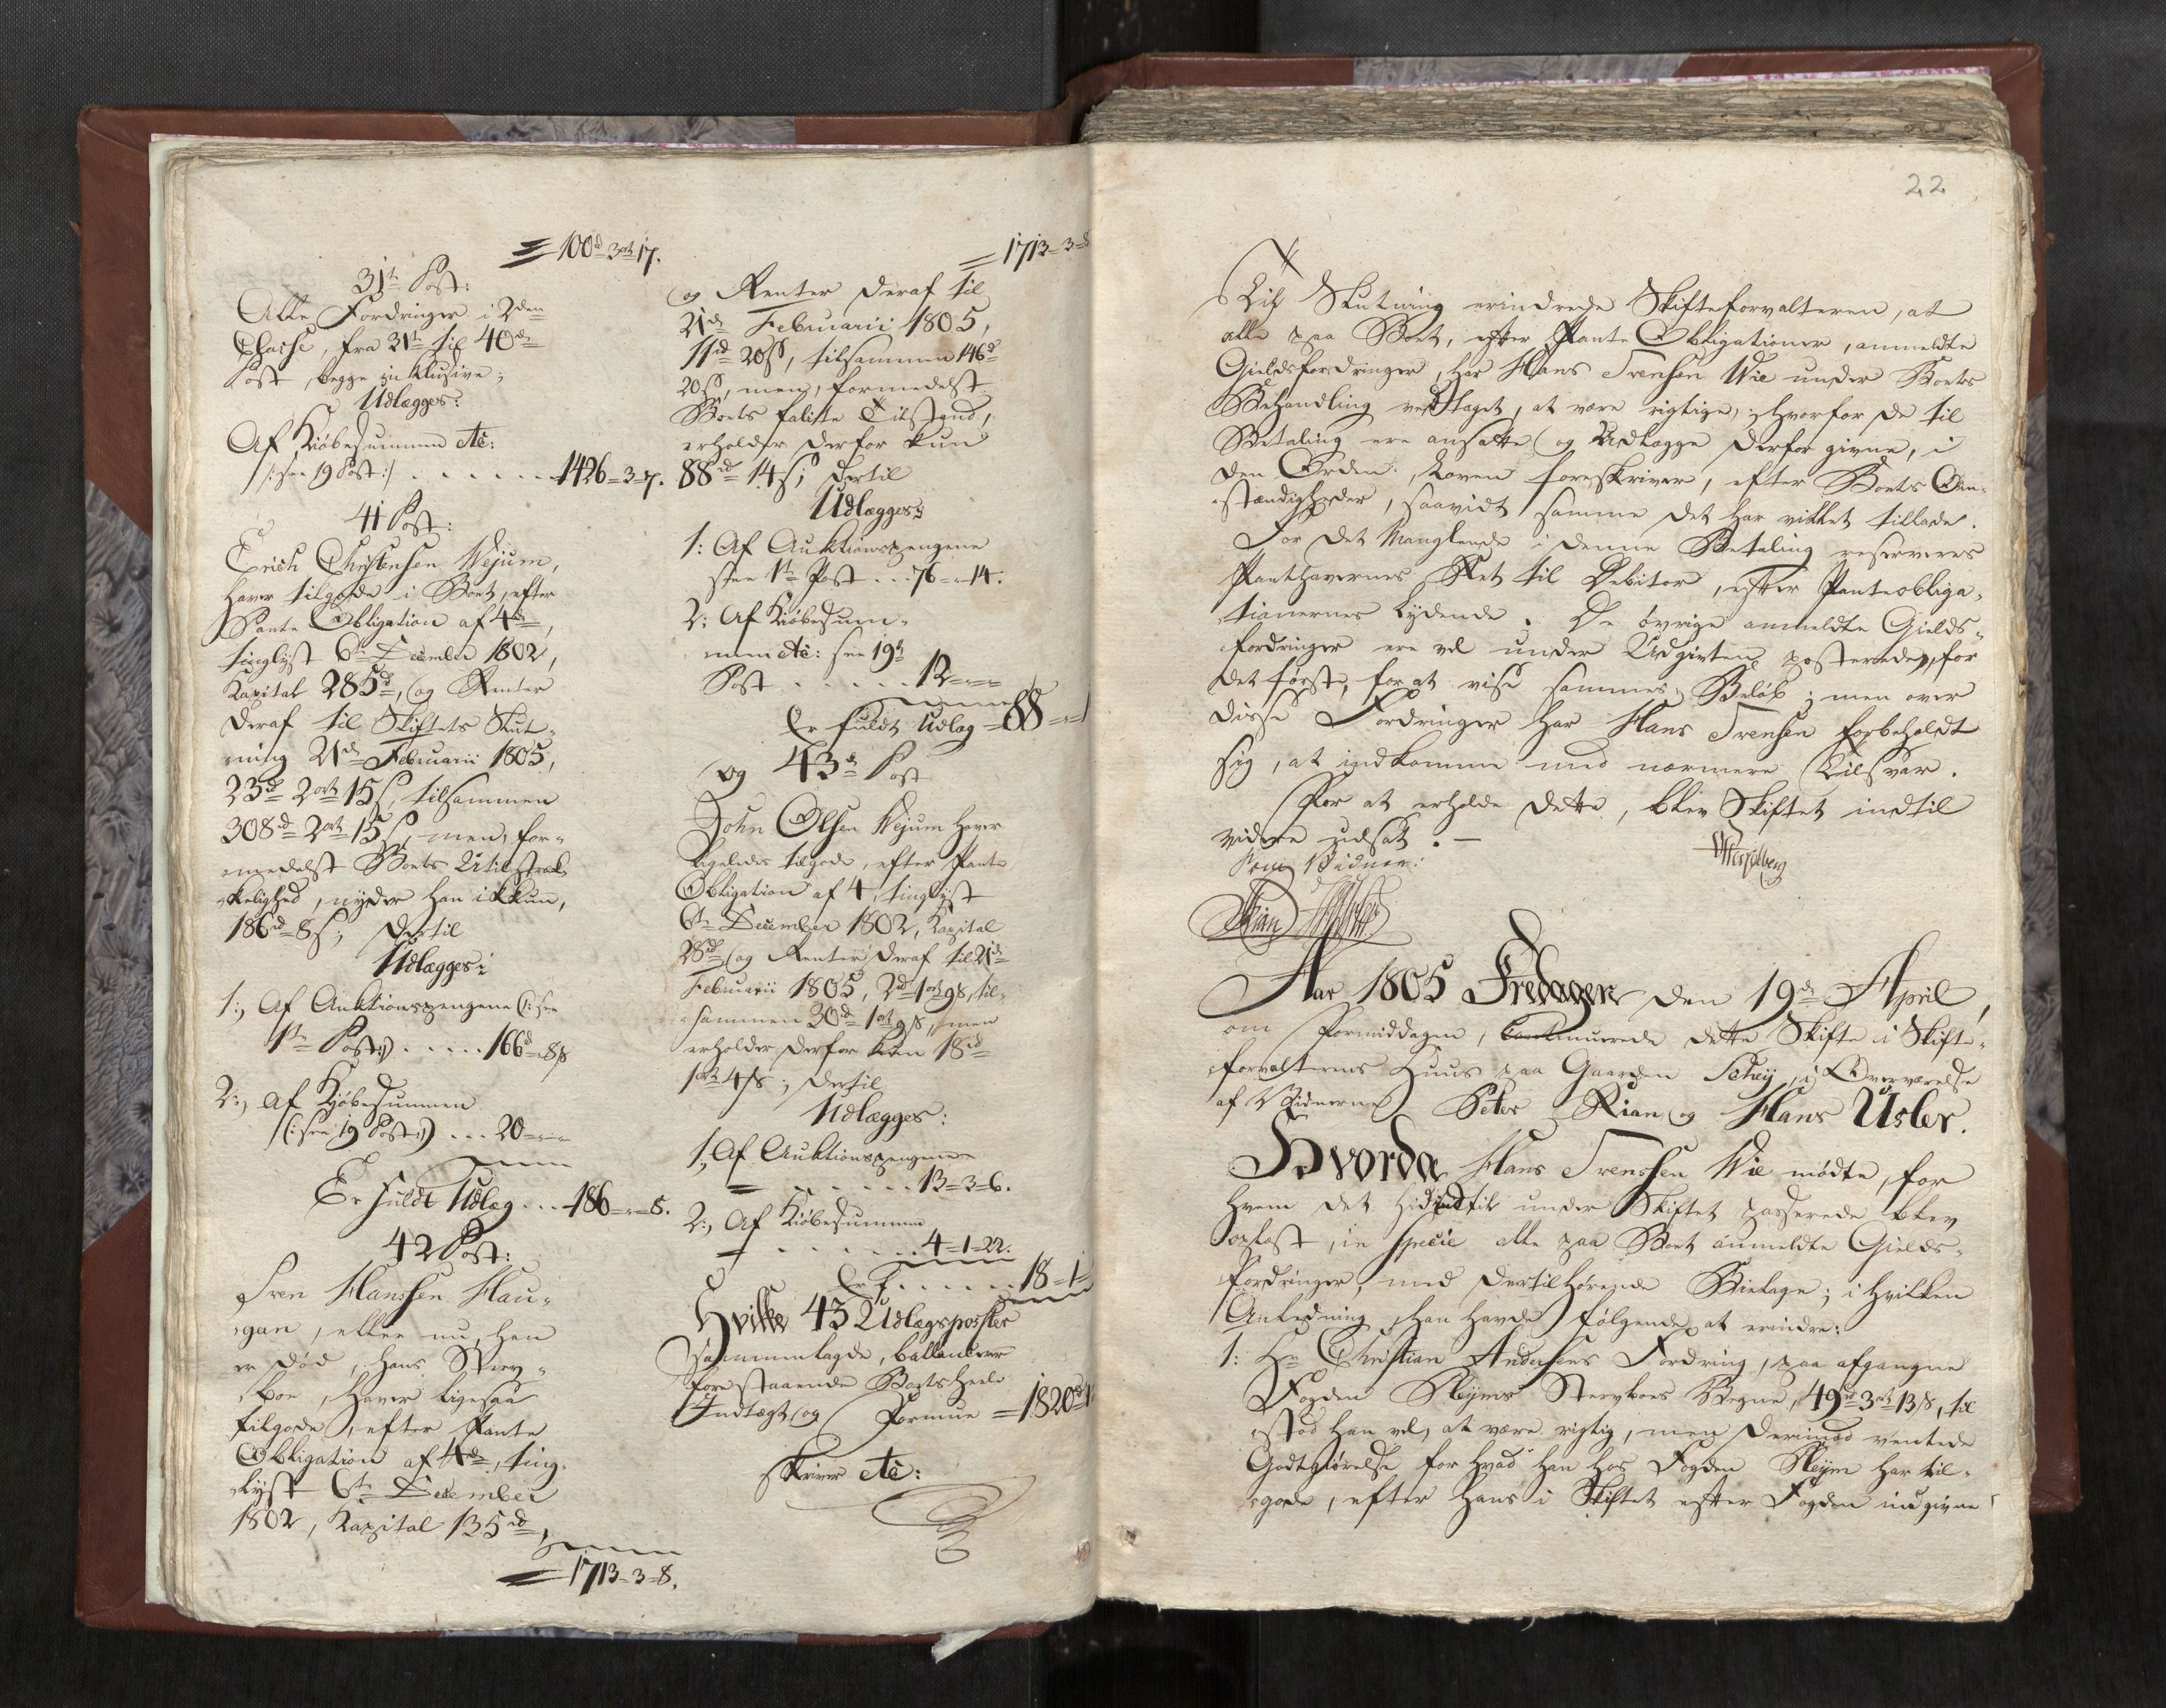 = 100d 3ort 17.
31te Post:
Alle Fordringer i 2den
Classe, fra 31te til 40de
Post, begge inklusive;
Udlægges:
Af Kiøbesummen etc:
/: see 19 Post :/ . . . . . . 1426=3=7.
41 Post:
Erich Christensen Wejum,
haver tilgode i Boet, efter
Pante Obligation af 4de,
tinglyst 6te December 1802,
Kapital 285d, og Renter
deraf til Skiftets Slut-
ning 21de Februarii 1805,
23d 2ort 15s, tilsammen
308d 2ort 15s, men, for-
medelst Boets Utilstræk-
kelighed, nyder han ikkun,
186d 8s; dertil
Udlægges:
1:, Af Auktionspengene (: see
1te Post:) . . . . . 166d=8s
2:, Af Kjøbesummen
(: see 19 Post:) . . . 20=-=-
Er fuldt Udlæg . . . 186=-=8.
42 Post:
Iven Hanssen Hau-
gan, eller nu, han
er død, hans Sterv-
boe, haver ligesaa
tilgode, efter Pante
Obligation af 4de, ting-
lyst 6te December
1802, Kapital 135d,
= 1713=3=8.
= 1713=3=8
og Renter deraf til
21de Februarii 1805,
11d 20s, tilsammen 146d
20s, men, formedelst
Boets falitte Tilstand,
erholder derfor kun
88d 14s; dertil
Udlægges:
1: Af Auktionspengene
see 1te Post . . . 76=-=14.
2: Af Kiøbesum-
men etc: see 19de
Post . . . . . . 12=-=-
Er fuldt Udlæg = 88=-=1
og 43de Post
John Olsen Wejum haver
ligeledes tilgode, efter Pante
Obligation af 4, tinglyst
6te December 1802, Kapital
28d, og Renter deraf til 21de
Februarii 1805, 2d 1ort 9s, til-
sammen 30d 1ort 9s, men
erholder derfor kun 18d
1ort 4s; dertil
Udlægges:
1, Af Auktionspengene
= . . . . . . 13=3=6.
2:, Af Kiøbesummen
= . . . . . . 4=1=22.
Er . . . . . . 18=1=
Hvilke 43 Udlægsposter
sammenlagde, ballancerer
forestaaende Boets heele
Indtægt og Formue = 1820d 1
skriver etc:
22
Til Slutning erindrede Skifteforvalteren, at
alle paa Boet, efter Pante Obligationer, anmeldte
Gieldsfordringer, har Hans Ivensen Wie under Boets
Behandling vedtaget, at være rigtige, hvorfor de til
Betaling ere ansatte og Udlægge derfor givne, i
den Orden, Loven foreskriver, efter Boets Om-
stændigheder, saavidt samme det har villet tillade.
For det Manglende i denne Betaling reserveres
Panthavernes Ret til Debitor, efter Panteobliga-
tionernes Lydende. De øvrige anmeldte Gields-
fordringer ere vel under Udgivten posterede, for
det første, for at vise sammes Beløb; men over
disse Fordringer har Hans Ivensen forbeholdt
sig, at indkomme med nærmere Tilsvar.
For at erholde dette, blev Skiftet indtil
videre udsat. —
Som Vidner:
Rian
Aar 1805 Fredagen den 19de April,
om Formiddagen, continuerede dette Skifte i Skifte-
forvalterens Huus paa Gaarden Schej, i Overværelse
af Vidnerne Peter Rian og Hans Usler.
Hvorda Hans Ivensen Wie mødte, for
hvem det hidindtil under Skiftet passerede blev
oplæst, in specie alle paa Boet anmeldte Gields-
fordringer, med dertilhørende Bielage; i hvilken
Anledning han havde følgende at erindre:
1: Hr Christian Andersens Fordring, paa afgangne
Fogden Klejms Stervboes Vegne, 49d 3ort 13s, til
stod han vel, at være rigtig, men derimod ventede
Godtgiørelse for hvad han hos Fogden Klejm har til-
gode, efter hans i Skiftet efter Fogden indgivne